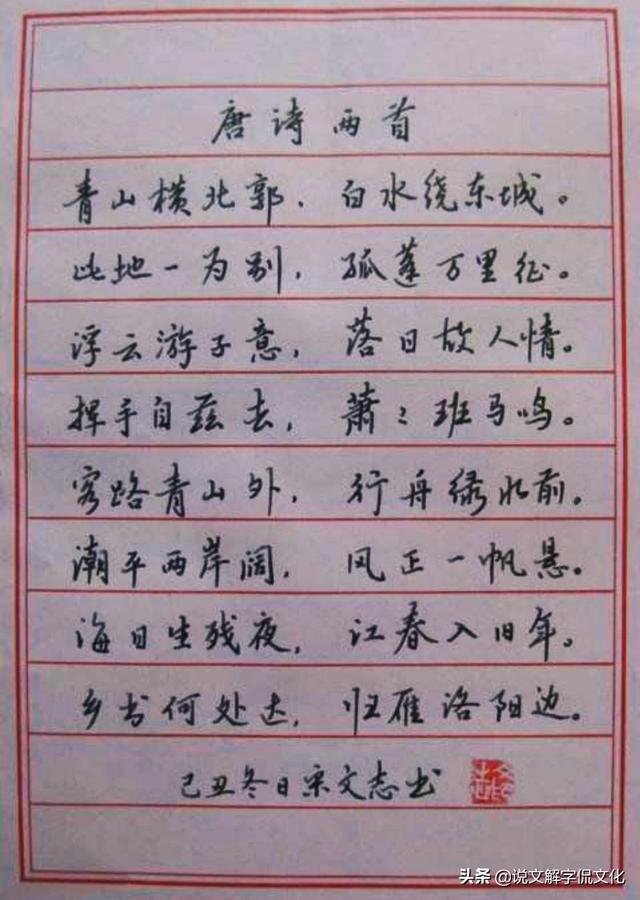 唐诗两首
青山横北郭，白水绕东城。
此地一为别，孤蓬万里征。
浮云游子意，落日故人情。
挥手自兹去，萧〻班马鸣。
客路青山外，行舟绿水前。
潮平两岸阔，风正一帆悬。
海日生残夜，江春入旧年。
乡书何处达，归雁洛阳边。
己丑冬日宋文志书
头条 @说文解字侃文化